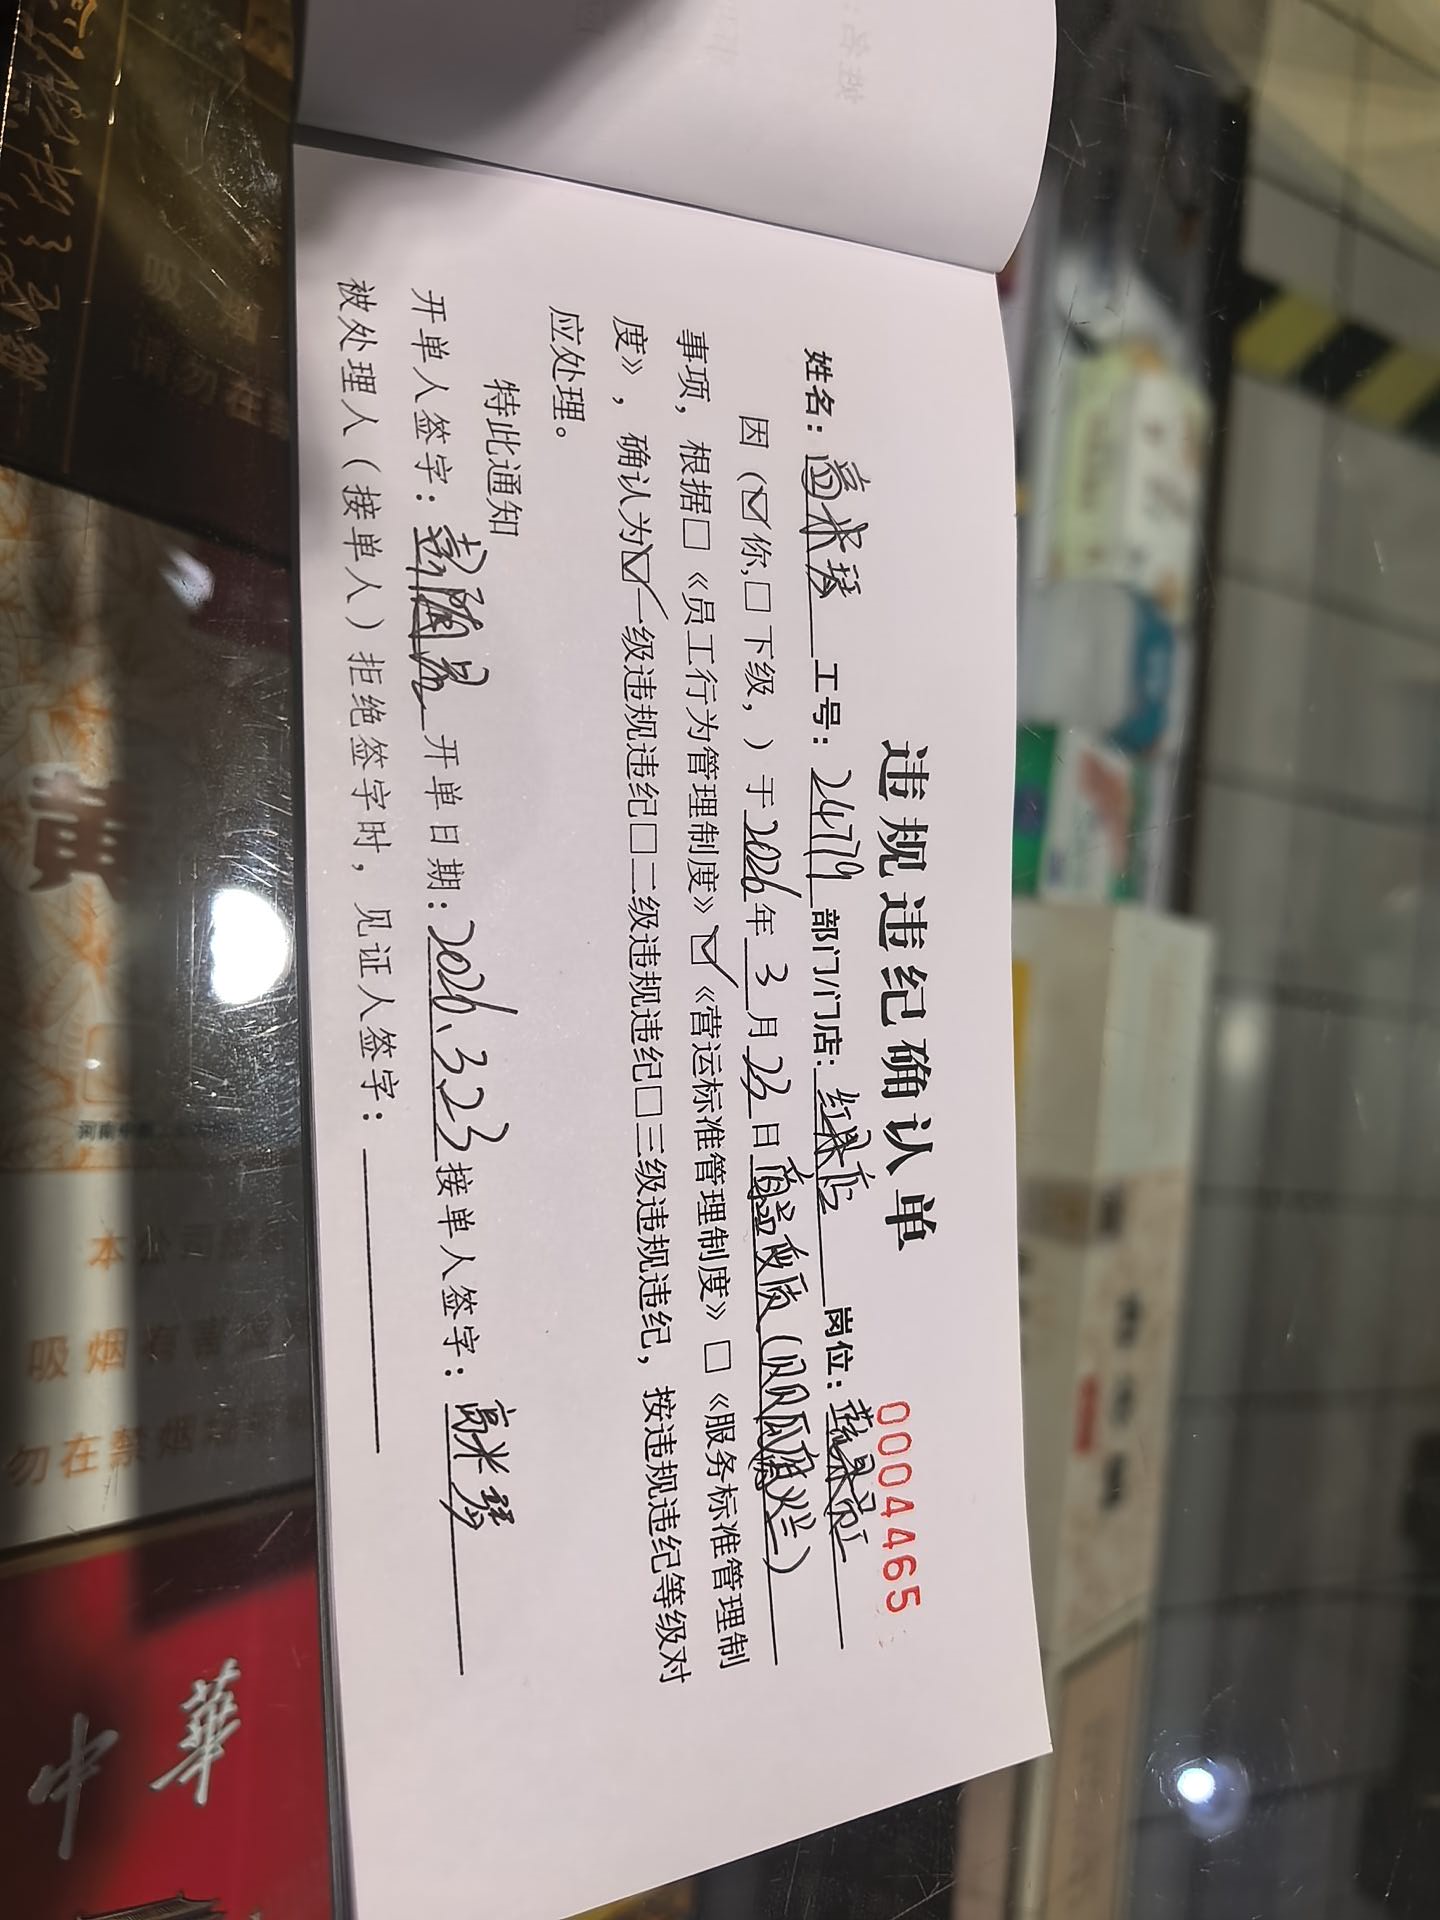 违规违纪确认单
0004465
姓名：高米琴 工号：24779 部门/门店：红木店 岗位：蔬果
因（☑你,□下级，）于2026年3月23日商品变质（
事项，根据□《员工行为管理制度》☑《营运标准管理制度》□《服务标准管理制
度》，确认为☑一级违规违纪□二级违规违纪□三级违规违纪，按违规违纪等级对
应处理。
特此通知
开单人签字： 开单日期：2026.3.23 接单人签字：高米琴
被处理人（接单人）拒绝签字时，见证人签字：
黄
本公司
吸烟有害
勿在禁烟
中華